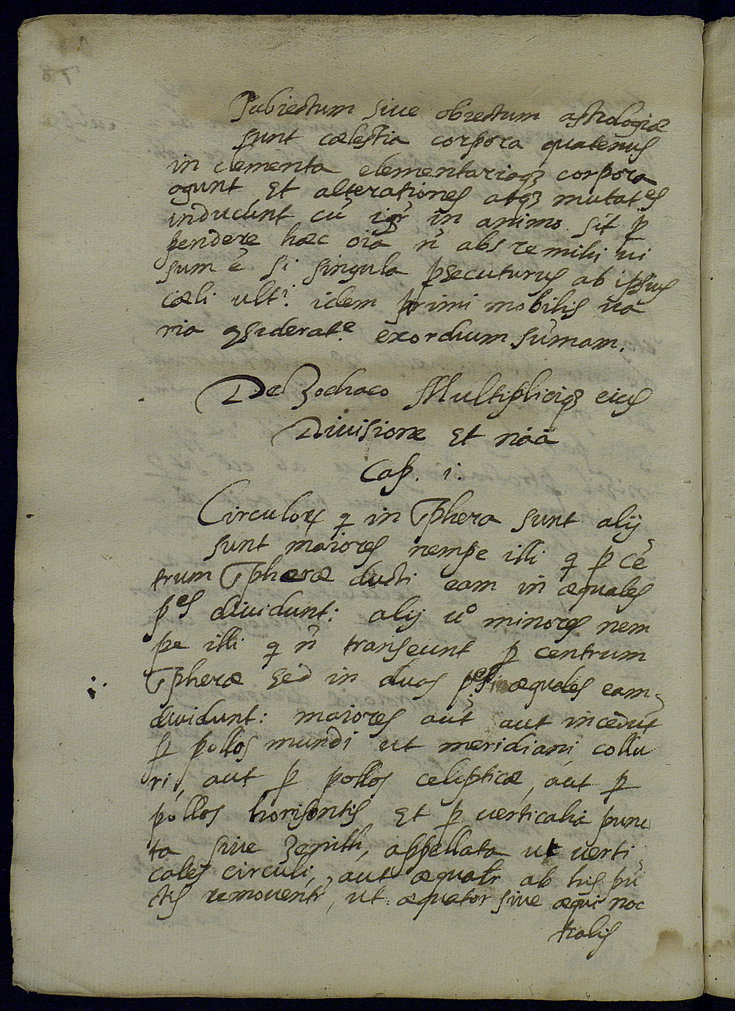 Subiectum siue obiectum astrologiæ
sunt cælestia corpora quatenus
in elementa elementariaqꝫ corpora
agunt et alterationes atqꝫ mutat.es
inducunt cũ igr̃ in animo sit ꝑ
pendere hæc oĩa ñ abs re mihi ui
sum ẽ si singula ꝓsecuturus ab ipsius
cæli ult.i idem primi mobilis ua
ria ꝯsiderat.e exordium sũmam.
De Zodiaco Multipliciqꝫ eius
Diuisione et nõia
Cap. i.
Circuloꝝ q in Sphera sunt alij
sunt maiores nempe illi q ꝑ cẽ
trum Spheræ ducti eam in æquales
p.es diuidunt: alij uº minores nem
pe illi q ñ transeunt ꝑ centrum
Spheræ sed in duas p.es inæquales eam
diuidunt: maiores aut̃ aut incedũt
ꝑ pollos mundi ut meridiani collu
ri, aut ꝑ pollos eclipticæ, aut ꝑ
pollos horisontis et ꝑ uerticalia punc
ta siue Zenith, appellata ut uerti
cales circuli, aut æqualr̃ ab his pũ
ctis remouentr̃, ut æquator siue æqui noc
tialis